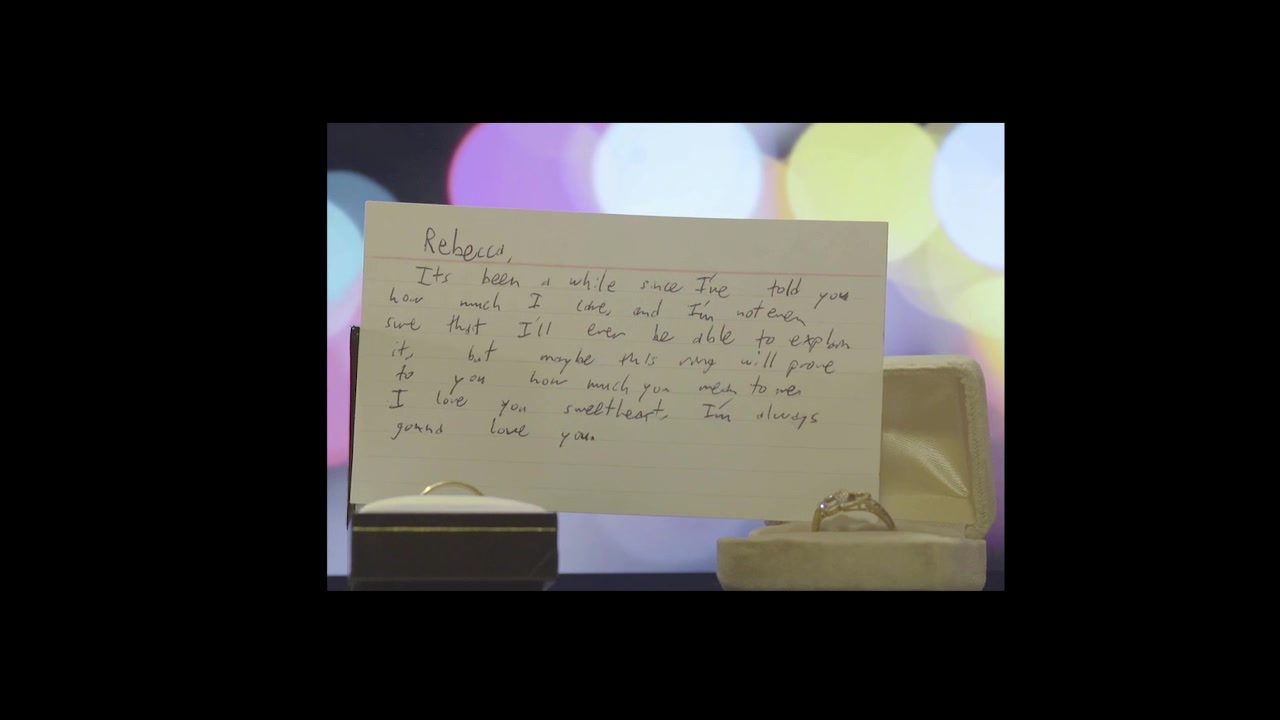 Rebecca,
Its been a while since I've told you
how much I care, and I'm not even
sure that I'll ever be able to explain
it, but maybe this ring will prove
to you how much you mean to me.
I love you sweetheart, I'm always
gunna love you.